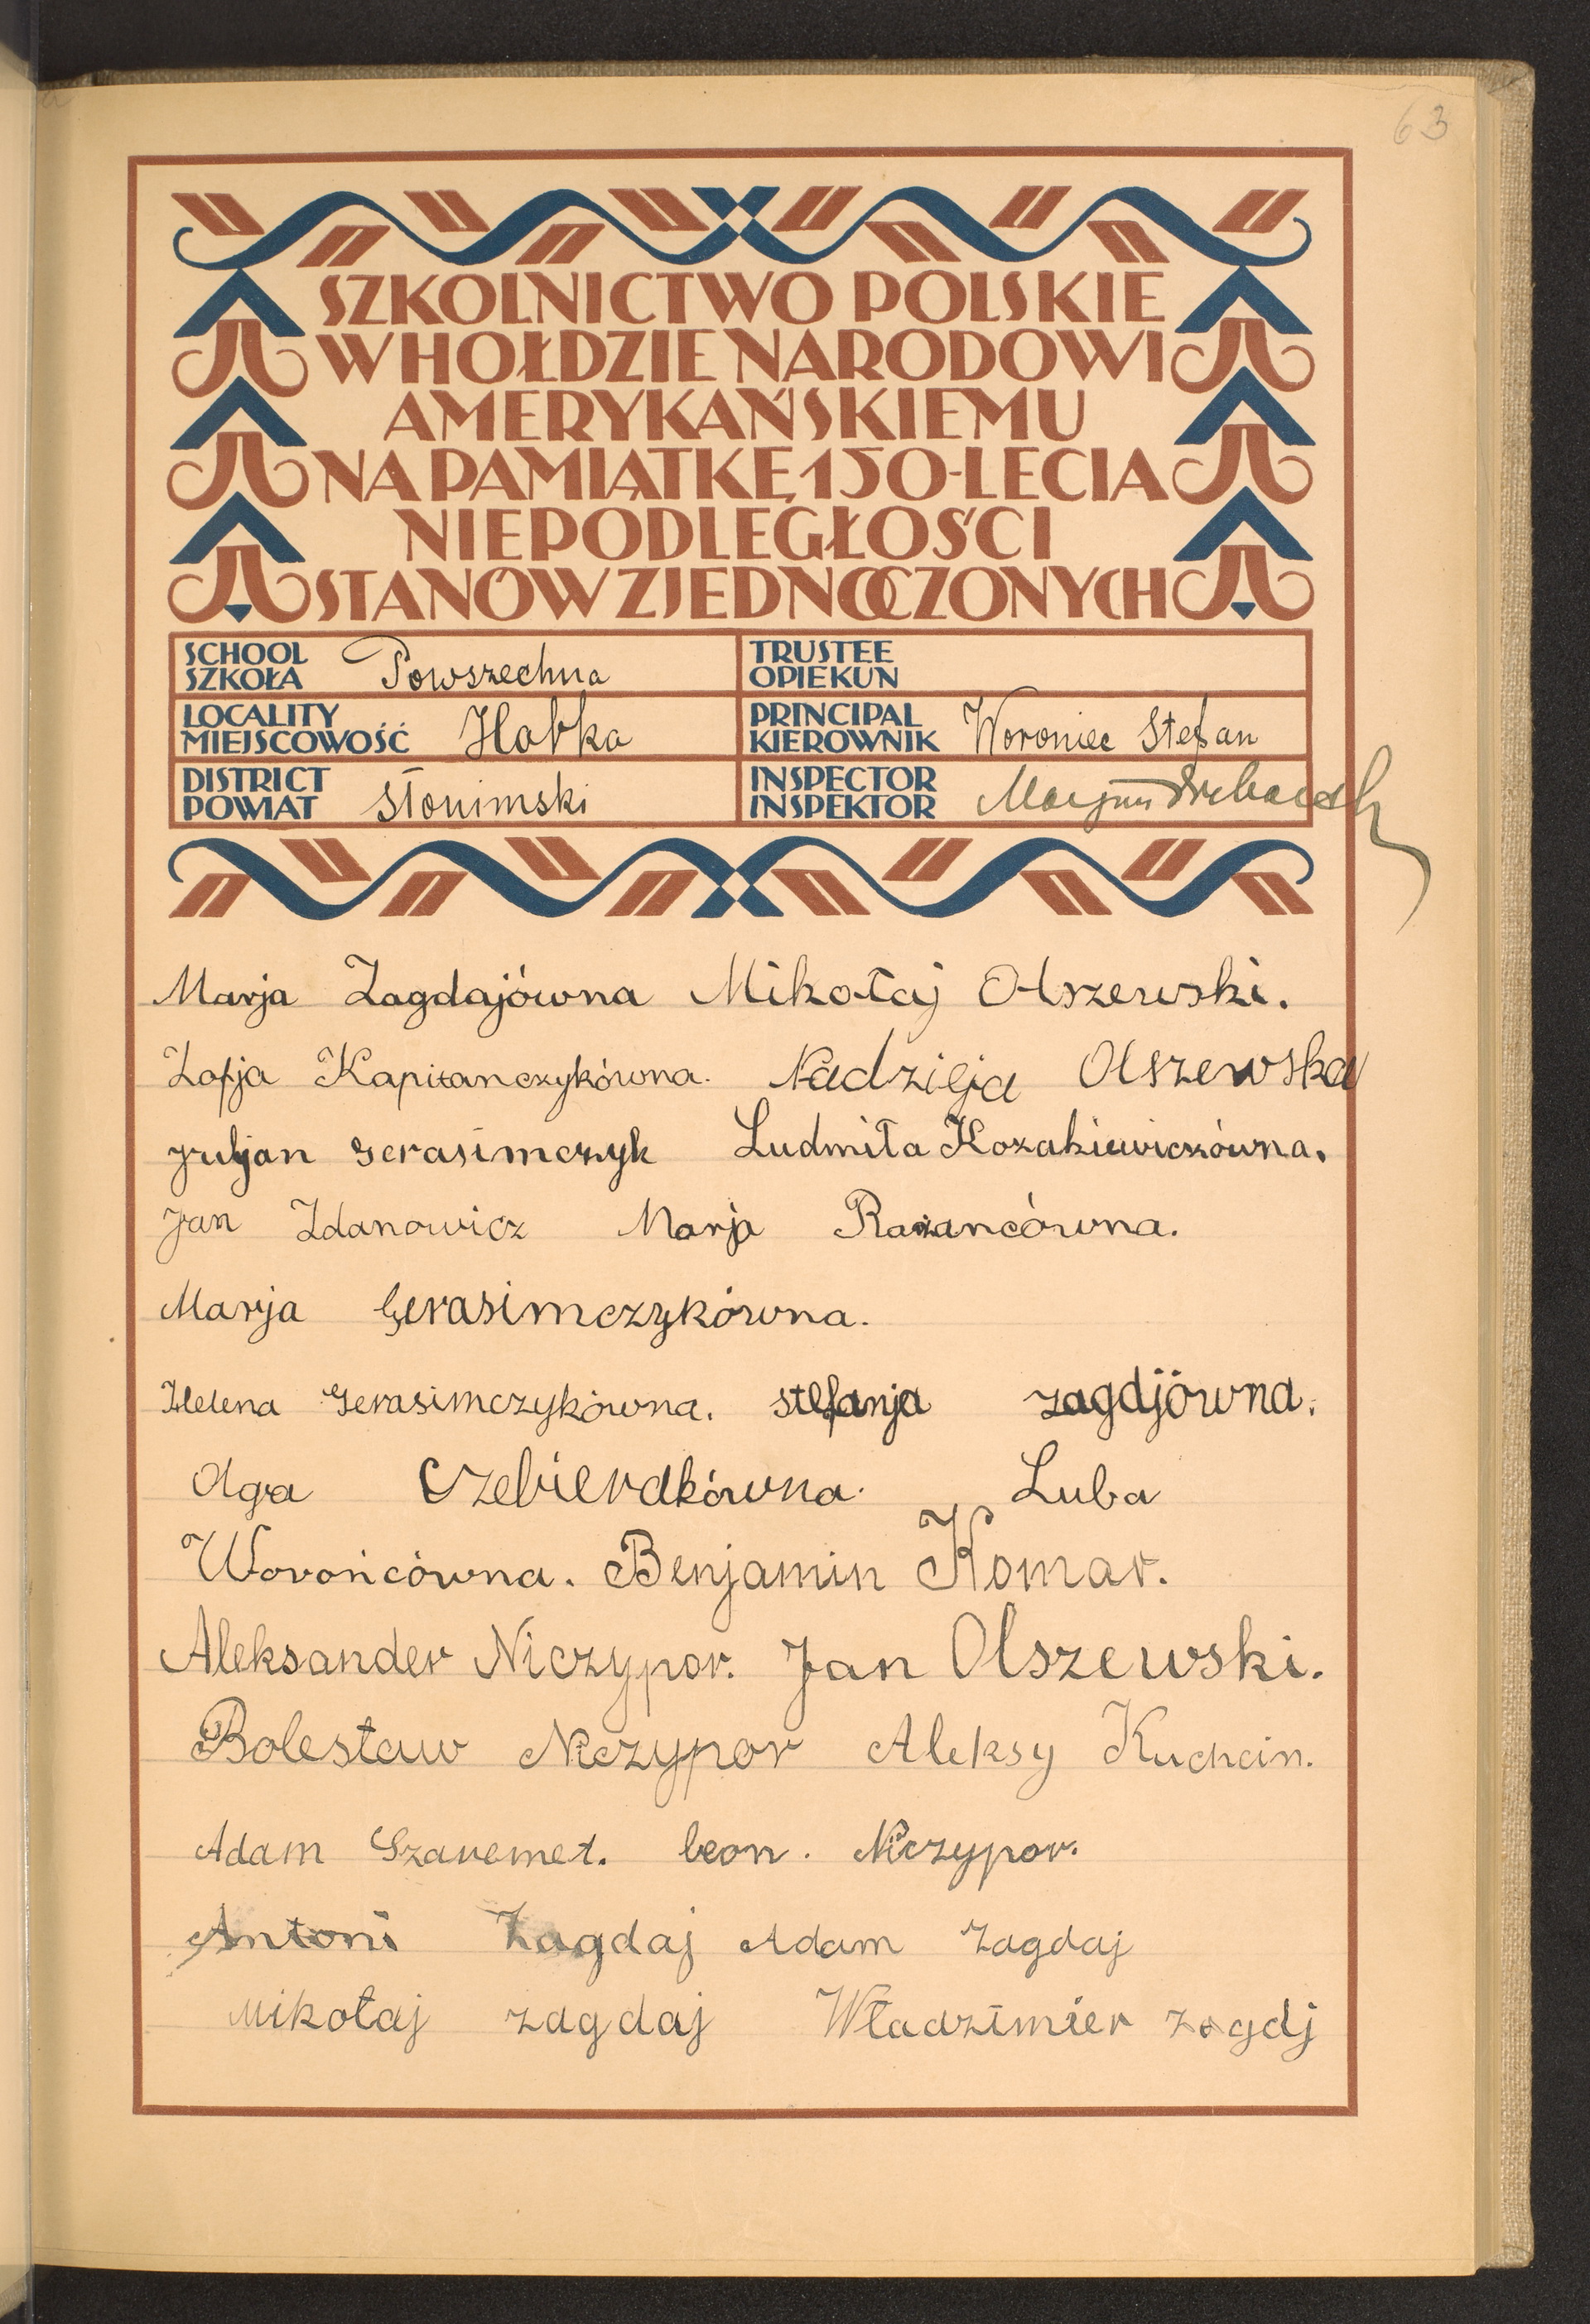 63
SZKOLNICTWO POLSKIE
W HOŁDZIE NARODOWI
AMERYKAŃSKIEMU
NA PAMIĄTKĘ 150-LECIA
NIEPODLEGŁOŚCI
STANÓW ZJEDNOCZONYCH
SCHOOL
SZKOŁA Powszechna
TRUSTEE
OPIEKUN
LOCALITY
MIEJSCOWOŚĆ Hatka
PRINCIPAL
KIEROWNIK Woroniec Stefan
DISTRICT
POWIAT Słonimski
INSPECTOR
INSPEKTOR
Marja Zagdajówna Mikołaj Olszewski.
Zofja Kapitanczykówna. Nadzieja Olszewska
Juljan Gerasimczyk Ludmiła Kozakiewiczówna.
Jan Zdanowicz Marja Rażancówna.
Marja Gerasimczykówna.
Helena Gerasimczykówna. Stefanja zagdjówna.
Olga Czebierakówna. Luba
Worońcówna. Benjamin Komar.
Aleksander Niczypor. Jan Olszewski.
Bolesław Niczypor Aleksy Kuchcin.
Adam Szaremet. Leon. Niczypor.
Antoni Zagdaj Adam Zagdaj
Mikołaj zagdaj Władzimier zagdj